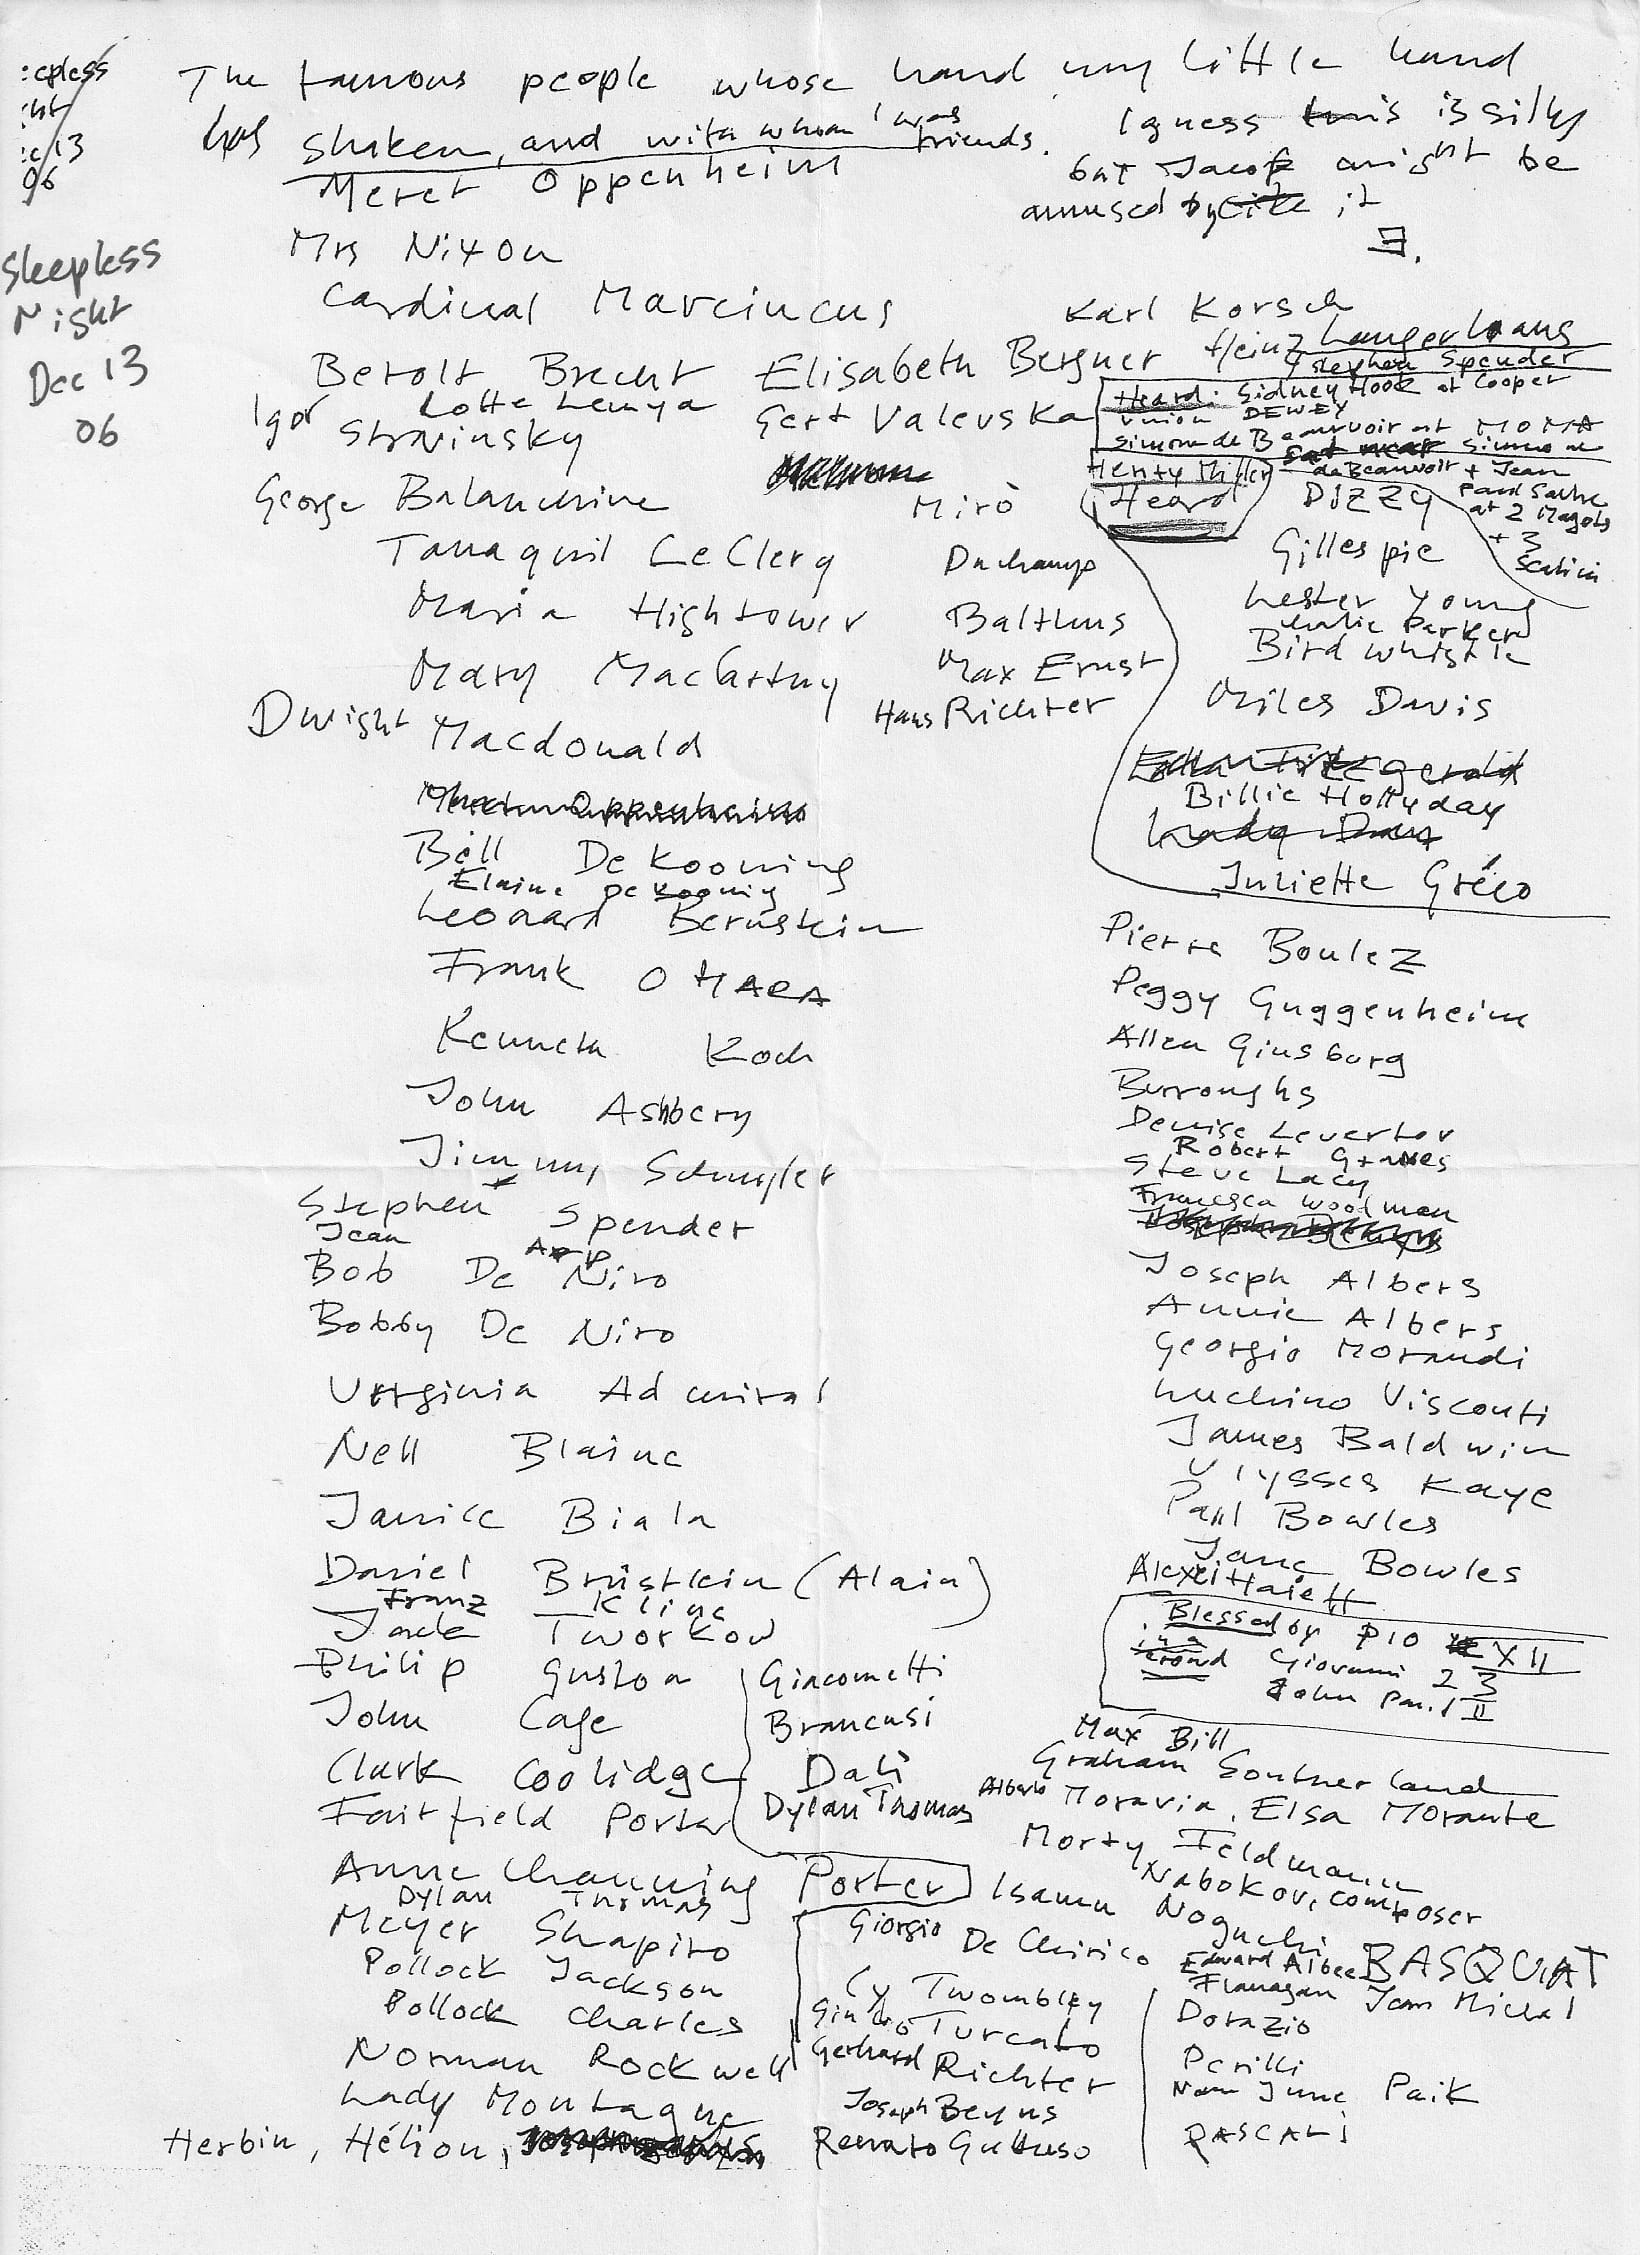 The famous people whose hand my little hand
has shaken, and with whom I was friends.
I guess this is silly
but Jacob might be
amused by it
E.
Sleepless
Night
Dec 13
06
Meret Oppenheim
Mrs Nixon
Cardinal Marcincus
Bertolt Brecht
Lotte Lenya
Igor Stravinsky
George Balanchine
Tanaquil LeClerq
Maria Hightower
Mary MacCartny
Dwight Macdonald
Bill De Kooning
Elaine De Kooning
Leonard Bernstein
Frank O HARA
Kenneth Koch
John Ashbery
Jimmy Schuyler
Stephen Spender
Jean Arp
Bob De Niro
Bobby De Niro
Virginia Admiral
Nell Blaine
Janice Biala
Daniel Brustlein (Alain)
Franz Kline
Jack Tworkow
Philip Guston
John Cage
Clark Coolidge
Fairfield Porter
Anne Channing Porter
Dylan Thomas
Meyer Shapiro
Pollock Jackson
Pollock Charles
Norman Rockwell
Lady Montague
Herbin, Hélion,
Elisabeth Bergner
Gert Valeuska
Mirò
Duchamp
Balthus
Max Ernst
Hans Richter
Giacometti
Brancusi
Dali
Dylan Thomas
Giorgio De Chirico
Cy Twombley
Giulio Turcato
Gerhard Richter
Joseph Beyus
Renato Guttuso
Karl Korsch
Heinz Langerhans
Stephen Spender
Heard: Sidney Hook at Cooper
Union DEWEY
Simone de Beauvoir at MOMA
Sat near Simone
de Beauvoir + Jean
Paul Satre
at 2 Magots
+ 3
Henry Miller
Heard
DIZZY
Gillespie
Lester Young
Charlie Parker
Bird whistle
Miles Davis
Ella Fitzgerald
Billie Hollyday
Lady Day
Juliette Gréco
Pierre Boulez
Peggy Guggenheim
Allen Ginsburg
Burroughs
Denise Levertov
Robert Graves
Steve Lacy
Francesca Woodman
Joseph Albers
Annie Albers
Georgio Morandi
Luchino Visconti
James Baldwin
Ulysses Kaye
Paul Bowles
Jane Bowles
Alexei Haieff
Blessed by PIO XII
in a crowd Giovanni 23
John Paul II
Max Bill
Graham Southerland
Alberto Moravia, Elsa Morante
Morty Feldmann
Nabokov, composer
Isamu Noguchi
Edward Albee
BASQUIAT
Jean Michel
Flanagan
Dorazio
Perilli
Nam June Paik
PASCALI